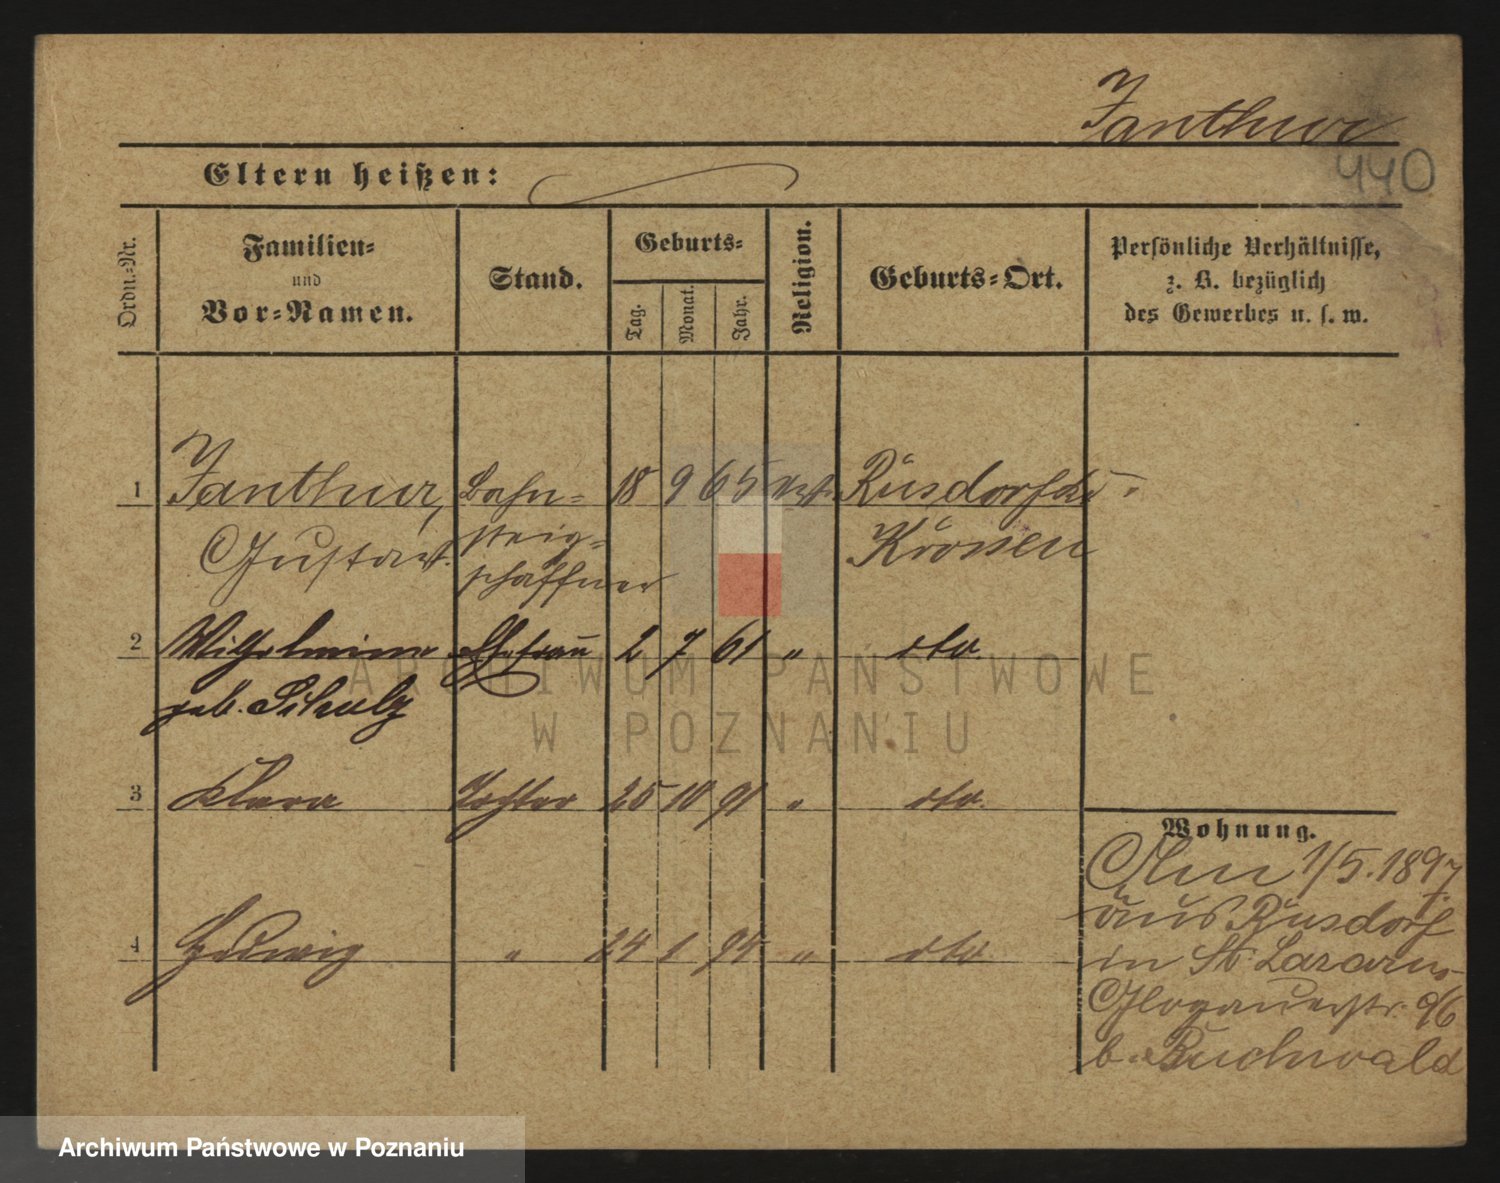 Janthur
440
Eltern heißen:
Ordn.-Nr.
Familien-
und
Vor-Namen.
Stand.
Geburts-
Tag.
Monat.
Jahr.
Religion.
Geburts-Ort.
Persönliche Verhältnisse,
z. B. bezüglich
des Gewerbes u. s. w.
1 Janthur, Bahn- 18 9 65 Rusdorf
Gustav. steig- Krossen
schaffner
2 Wilhelmine Ehefrau 2 7 61 " dto.
geb. Schulz
3 Klara Tochter 25 10 91 " dto.
4 Hedwig " 24 1 " dto.
Wohnung.
Am 1/5. 1897
aus Rusdorf
in St. Lazarus
Glogauerstr. 96
b. Buchwald
ARCHIWUM PAŃSTWOWE
W POZNANIU
Archiwum Państwowe w Poznaniu